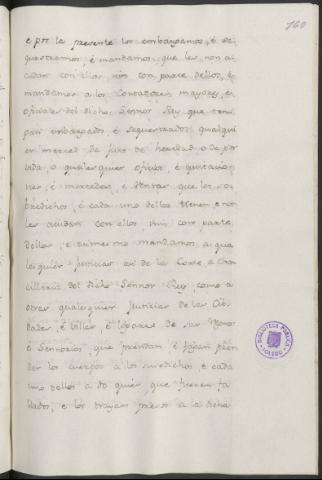 160
e por la presente los embargamos, é se-
questramos, é mandamos que les non a-
cudan con ellas, nin con parte dellos, é
mandamos a los Contadores mayores, é
oficiales del dicho Sennor Rey que ten-
gan embargados é sequestrados qualqui-
er merced de juro de heredad o de por
vida, o qualesquier oficios, é quitacio-
nes, é mercedes, é tierras que los so-
bredichos, é cada uno dellos tienen, e non
les acudan con ellos nin con parte
dellos, e asimesmo mandamos a qua-
lesquier Justicias asi de la Corte, e Chan-
cilleria del dicho Sennor Rey, como a
otras qualesquier Justicias de las Cib-
dades, é Villas, é logares de sus Reynos
é Sennorios, que prendan, é fagan pren-
der los cuerpos a los susodichos, e cada
uno dellos a do quier que fueren fa-
llados, e los trayan presos a la dicha
BIBLIOTECA PUBLICA
TOLEDO